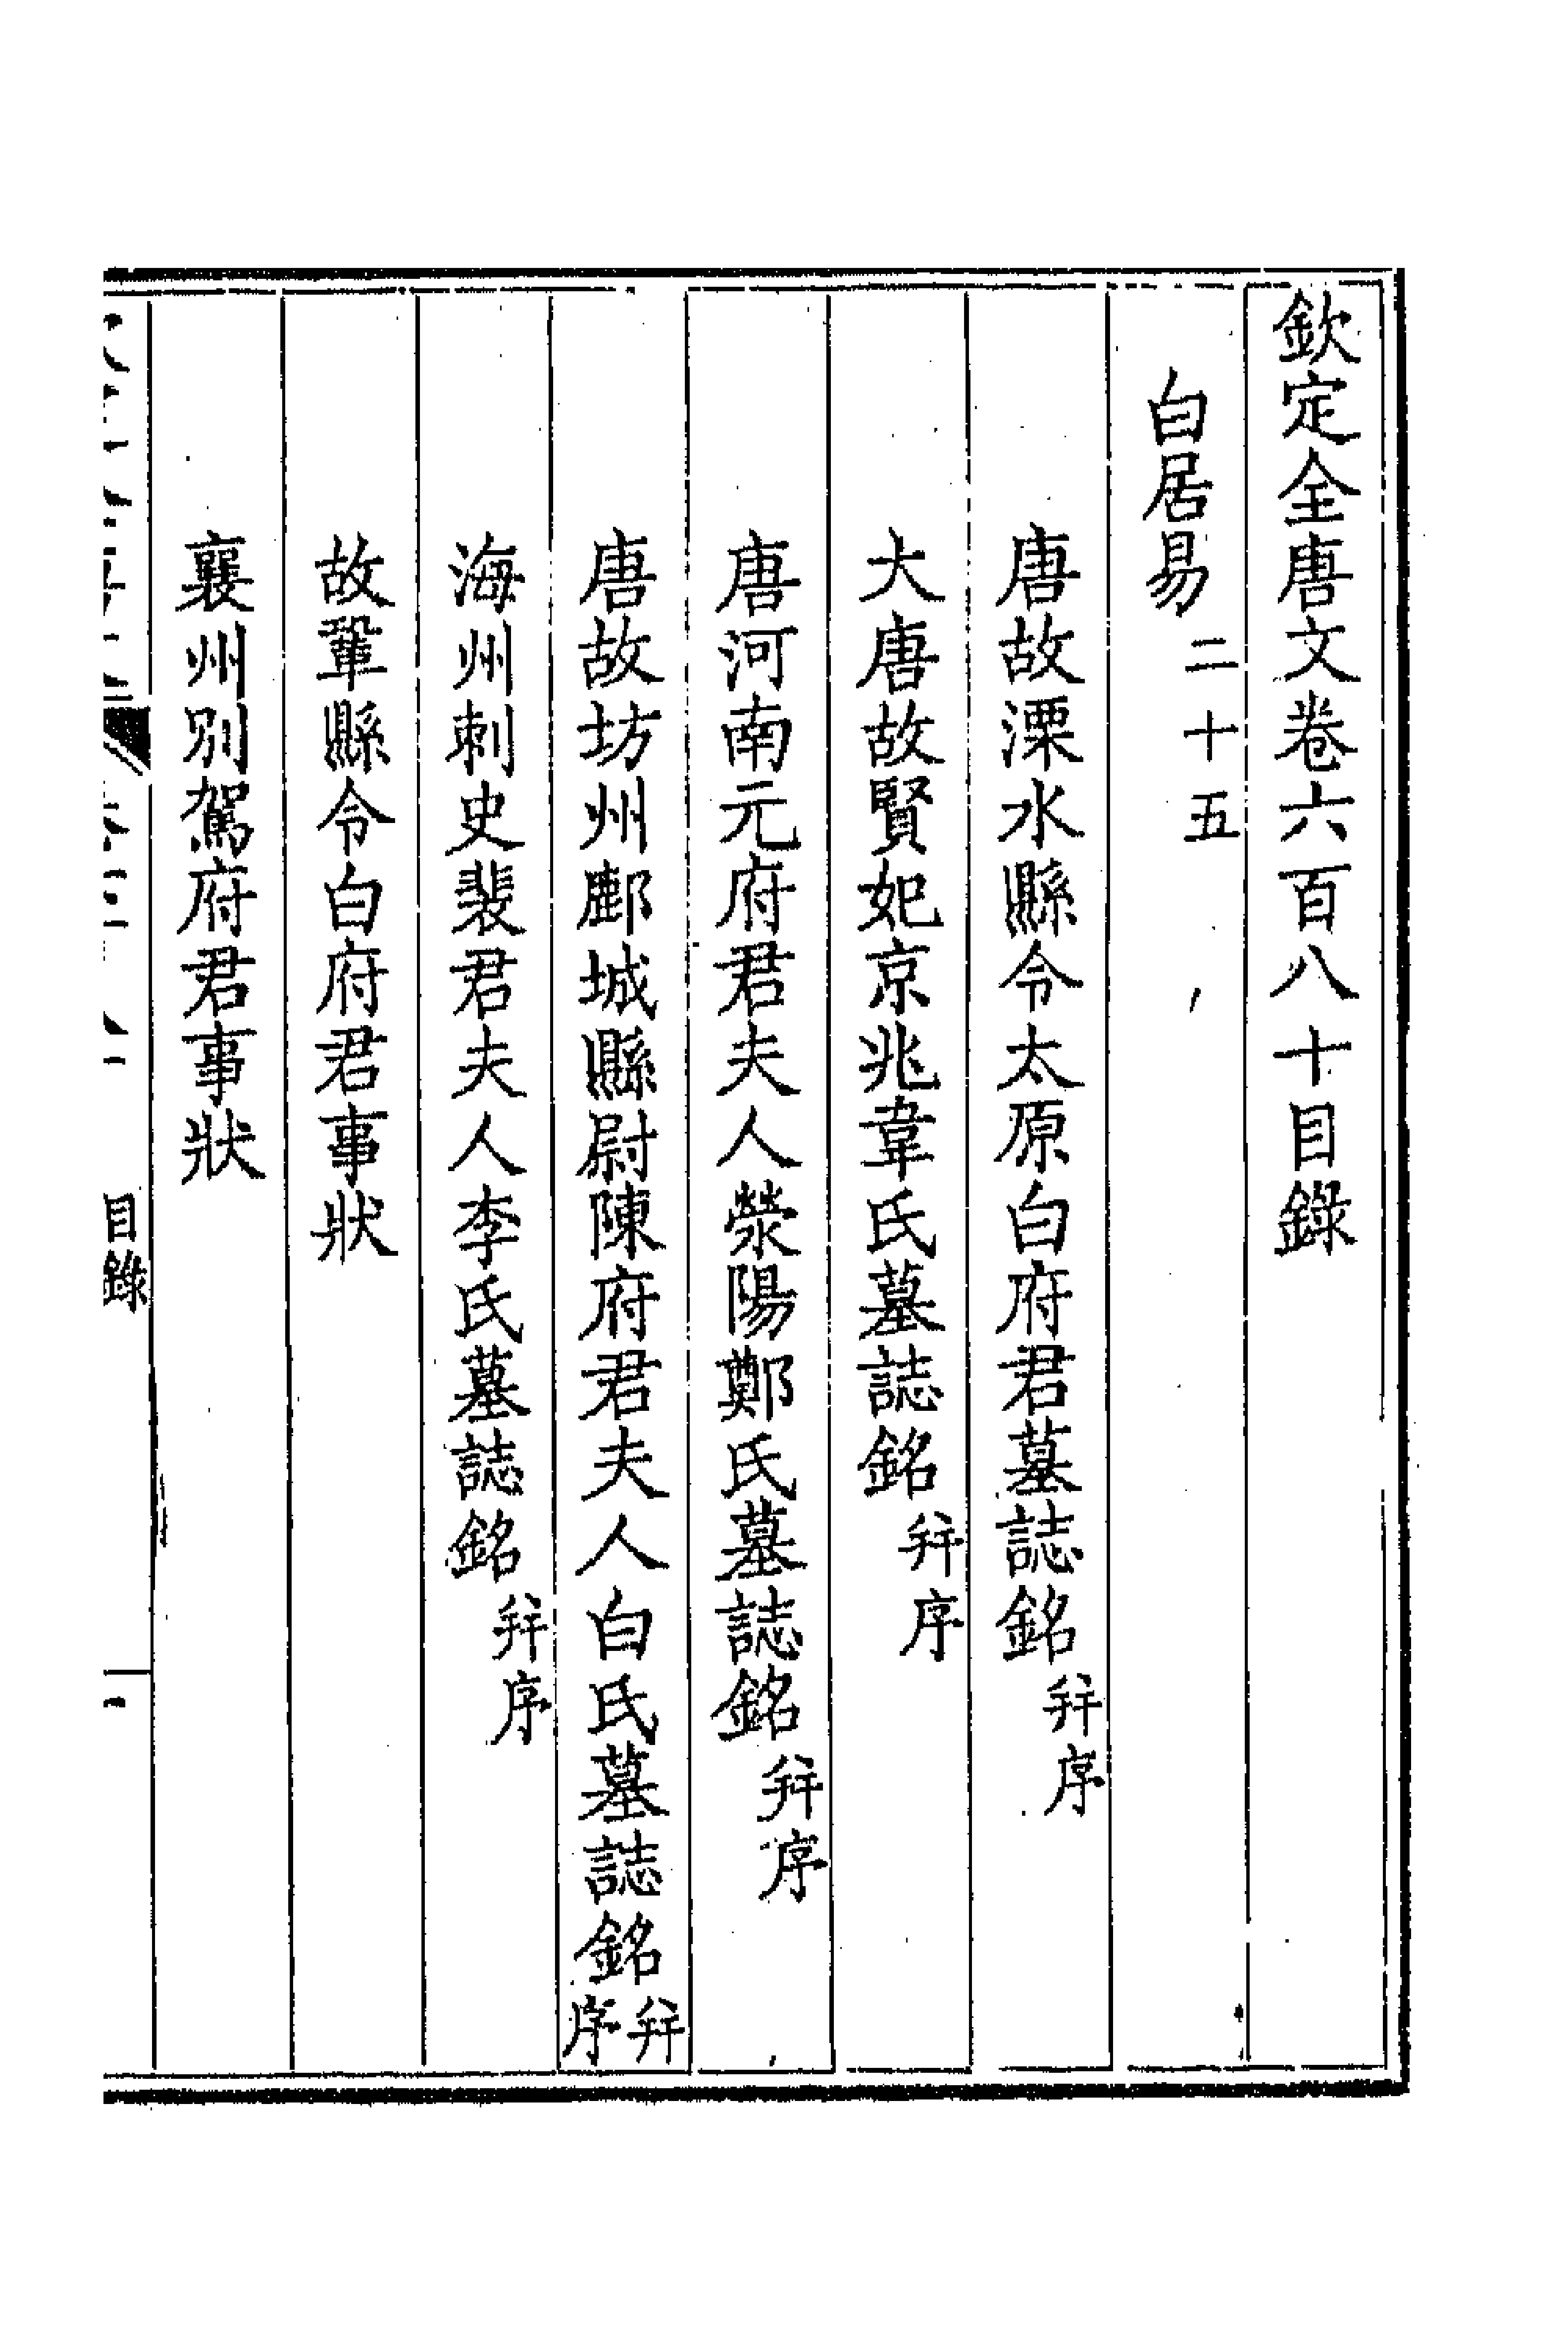 欽定全唐文卷六百八十目錄
白居易二十五
唐故溧水縣令太原白府君墓誌銘幷序
大唐故賢妃京兆韋氏墓誌銘幷序
唐河南元府君夫人滎陽鄭氏墓誌銘幷序
唐故坊州鄜城縣尉陳府君夫人白氏墓誌銘幷序
海州刺史裴君夫人李氏墓誌銘幷序
故鞏縣令白府君事狀
襄州別駕府君事狀
目錄